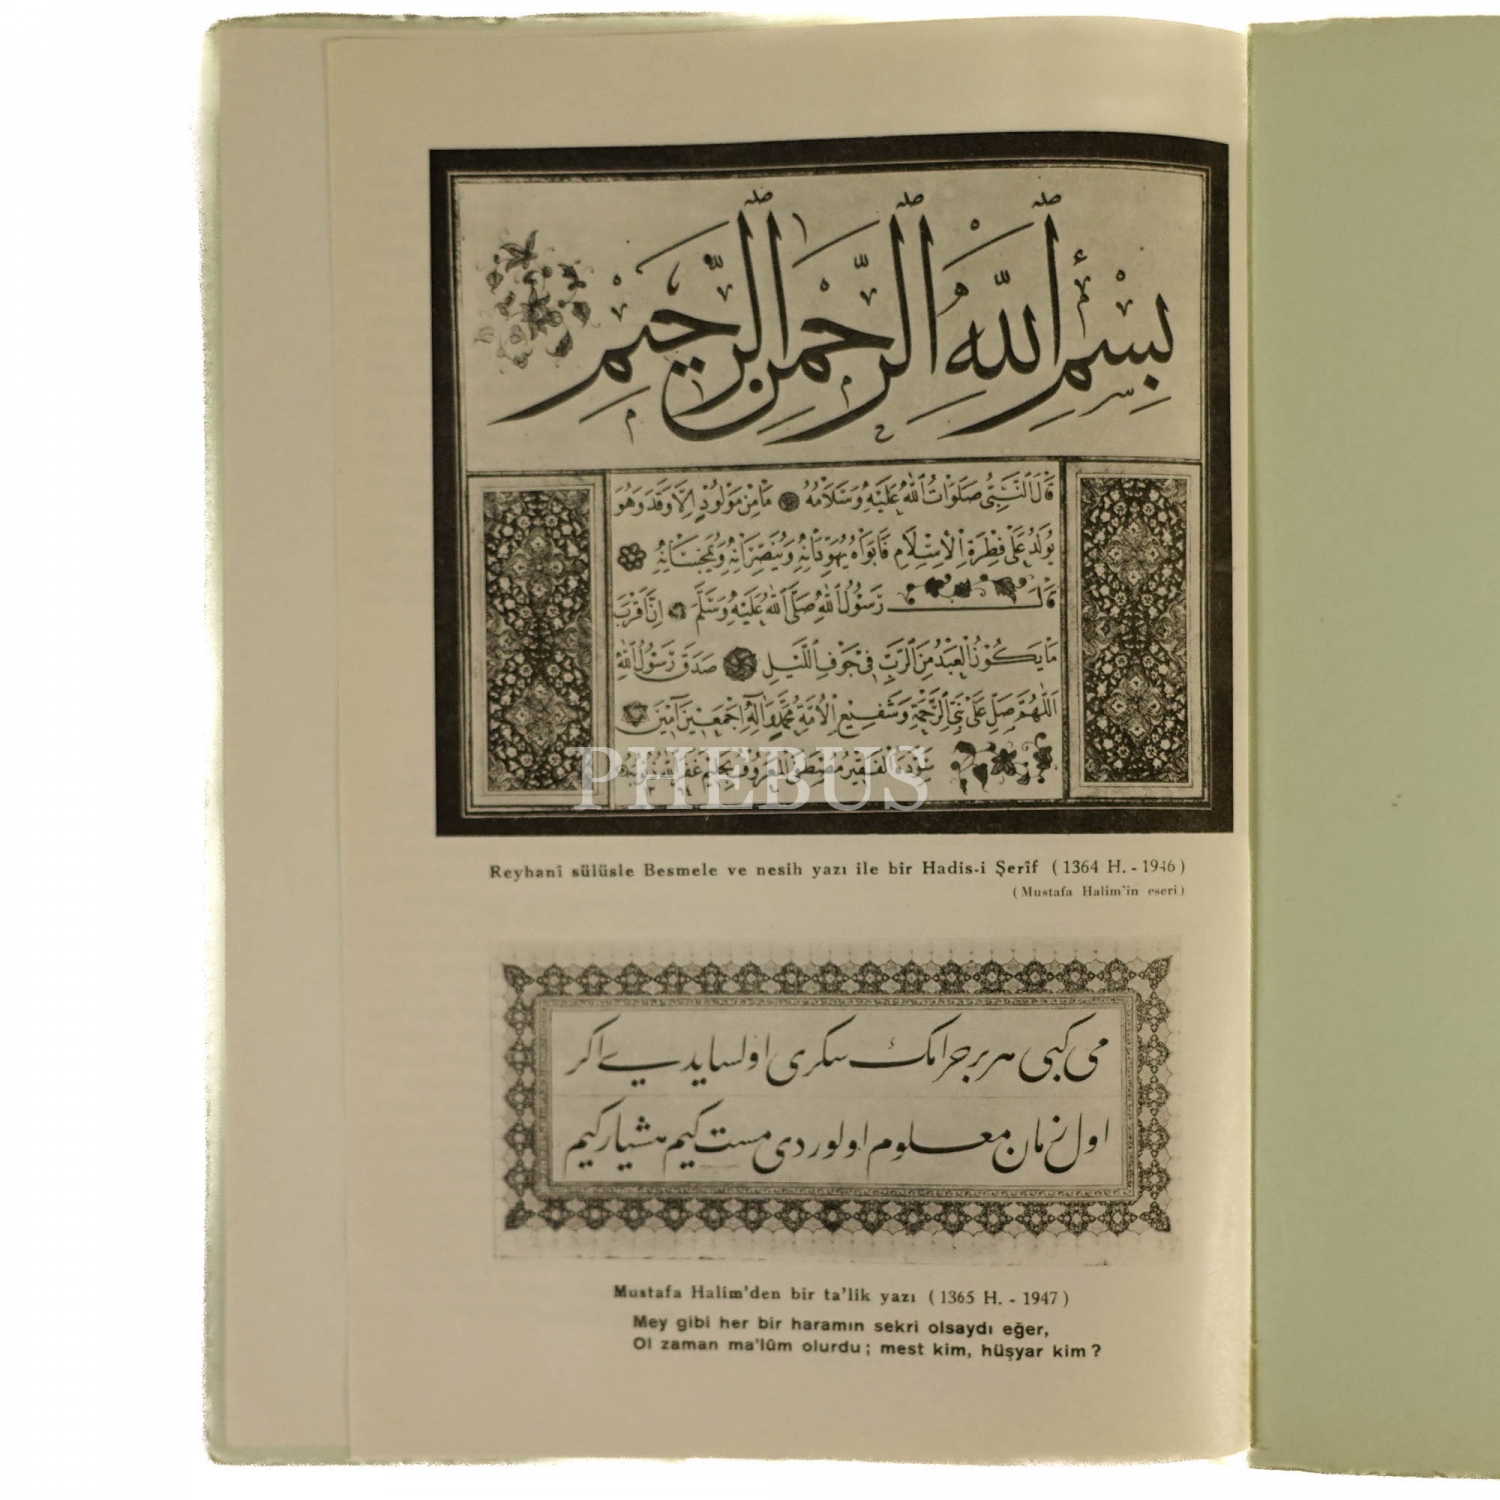 بسم الله الرحمن الرحيم
قال النبي صلوات الله عليه وسلامه ما من مولود الا وقد وهو
يولد على فطرة الاسلام فابواه يهودانه وينصرانه ويمجسانه
قال رسول الله صلى الله عليه وسلم ان اقرب
ما يكون العبد من الرب في جوف الليل صدق رسول الله
اللهم صل على نبي الرحمة وشفيع الامة محمد وآله اجمعين آمين
سوده الفقير مصطفى المعروف بحليم غفر
PHEBUS
Reyhanî sülüsle Besmele ve nesih yazı ile bir Hadis-i Şerîf (1364 H. - 1946)
(Mustafa Halim'in eseri)
می کبی هر بر حرامک سکری اولسایدی اکر
اول زمان معلوم اولوردی مست کیم هشیار کیم
Mustafa Halim'den bir ta'lik yazı (1365 H. - 1947)
Mey gibi her bir haramın sekri olsaydı eğer,
Ol zaman ma'lûm olurdu; mest kim, hüşyar kim?